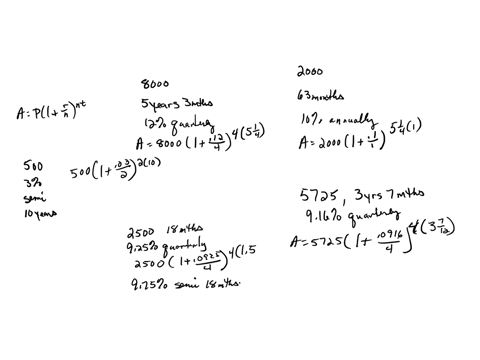 A = P(1 + r/n)^nt
500
3%
semi
10 years
500(1 + .03/2)^2(10)
8000
5 years 3 mths
12% quarterly
A = 8000(1 + .12/4)^4(5 1/4)
2000
63 mnths
10% annually
A = 2000(1 + .1/1)^5 1/4(1)
2500 18 mths
9.25% quarterly
2500(1 + .0925/4)^4(1.5
9.75% semi 18 mths.
5725, 3 yrs 7 mths
9.16% quarterly
A = 5725(1 + .0916/4)^4(3 7/12)